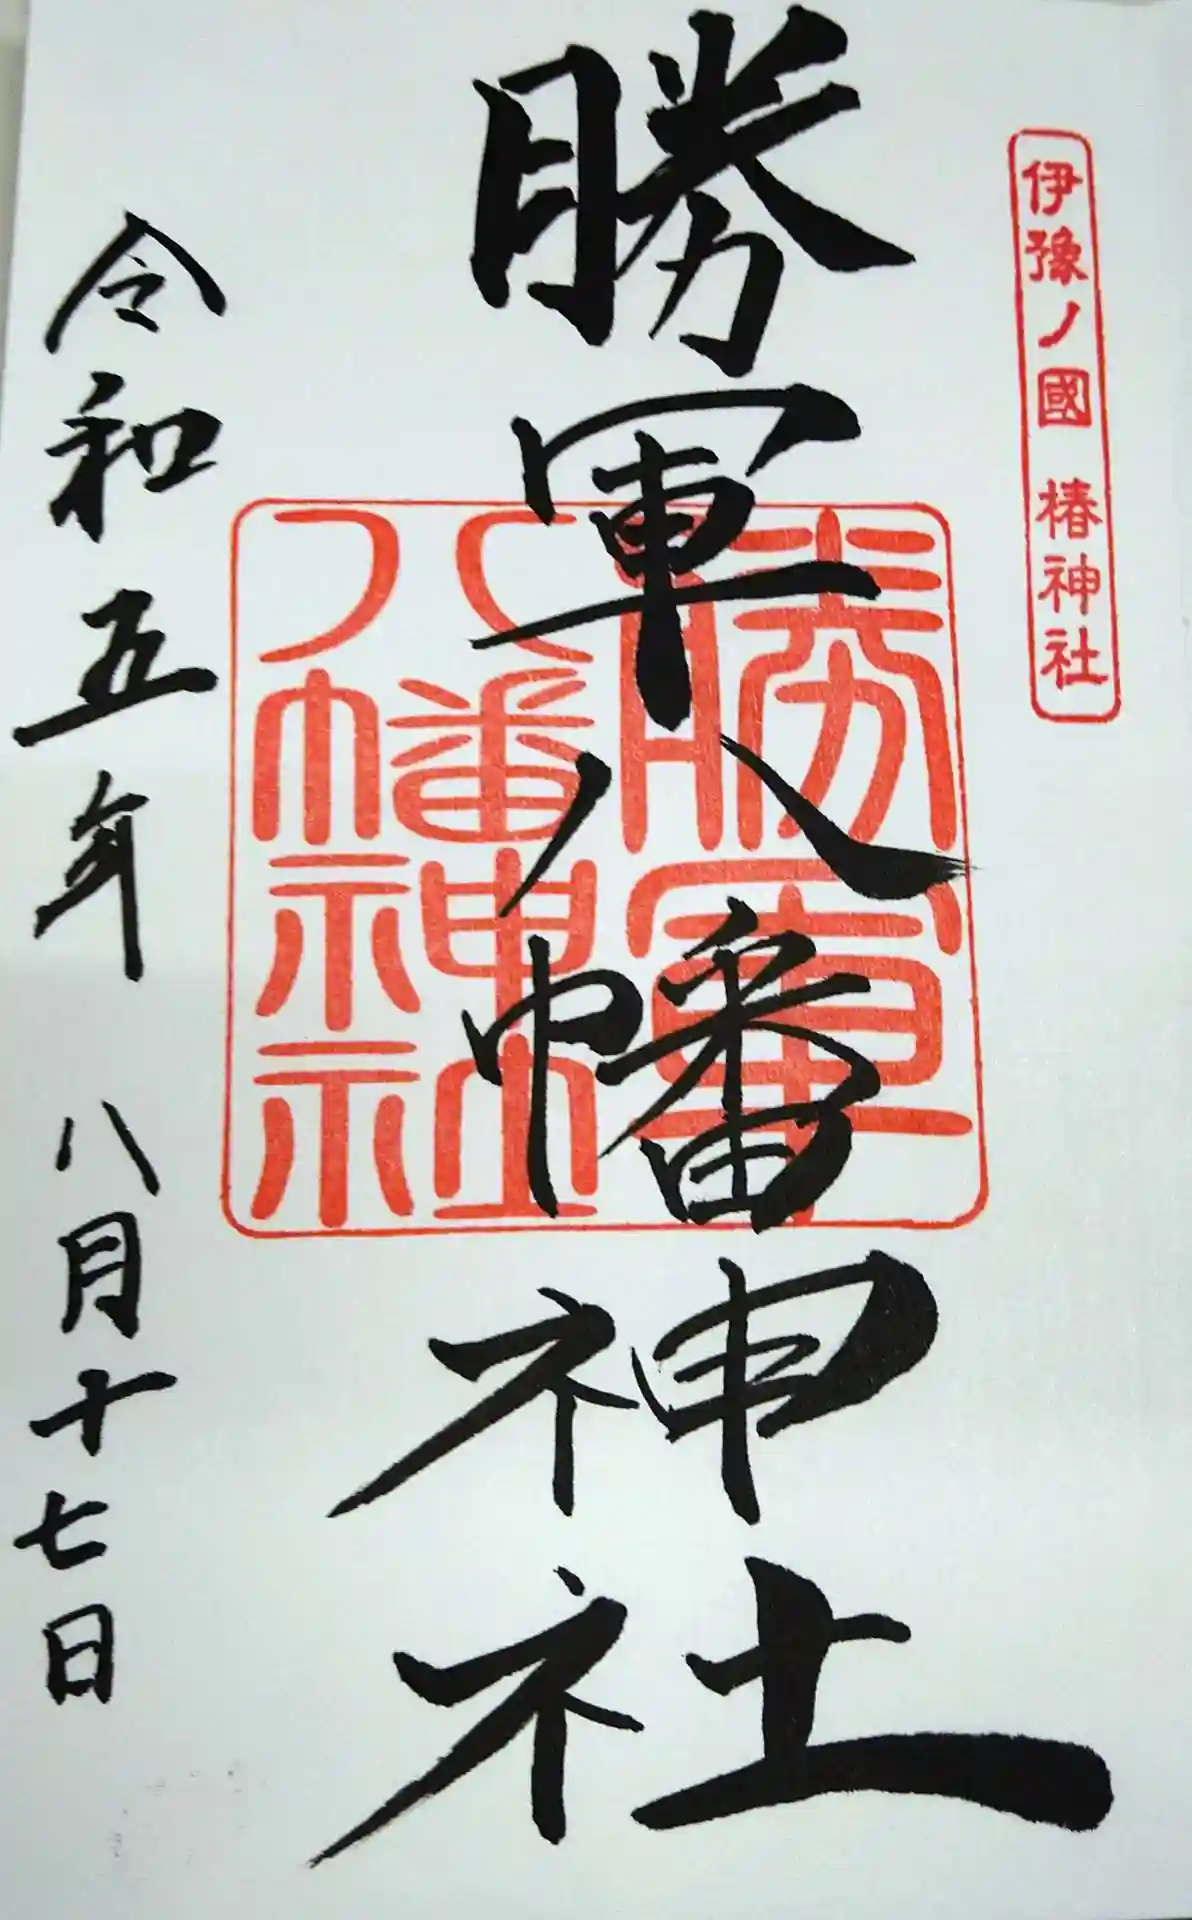 伊豫ノ國 椿神社
勝軍八幡神社
勝軍
八幡神社
令和五年 八月十七日